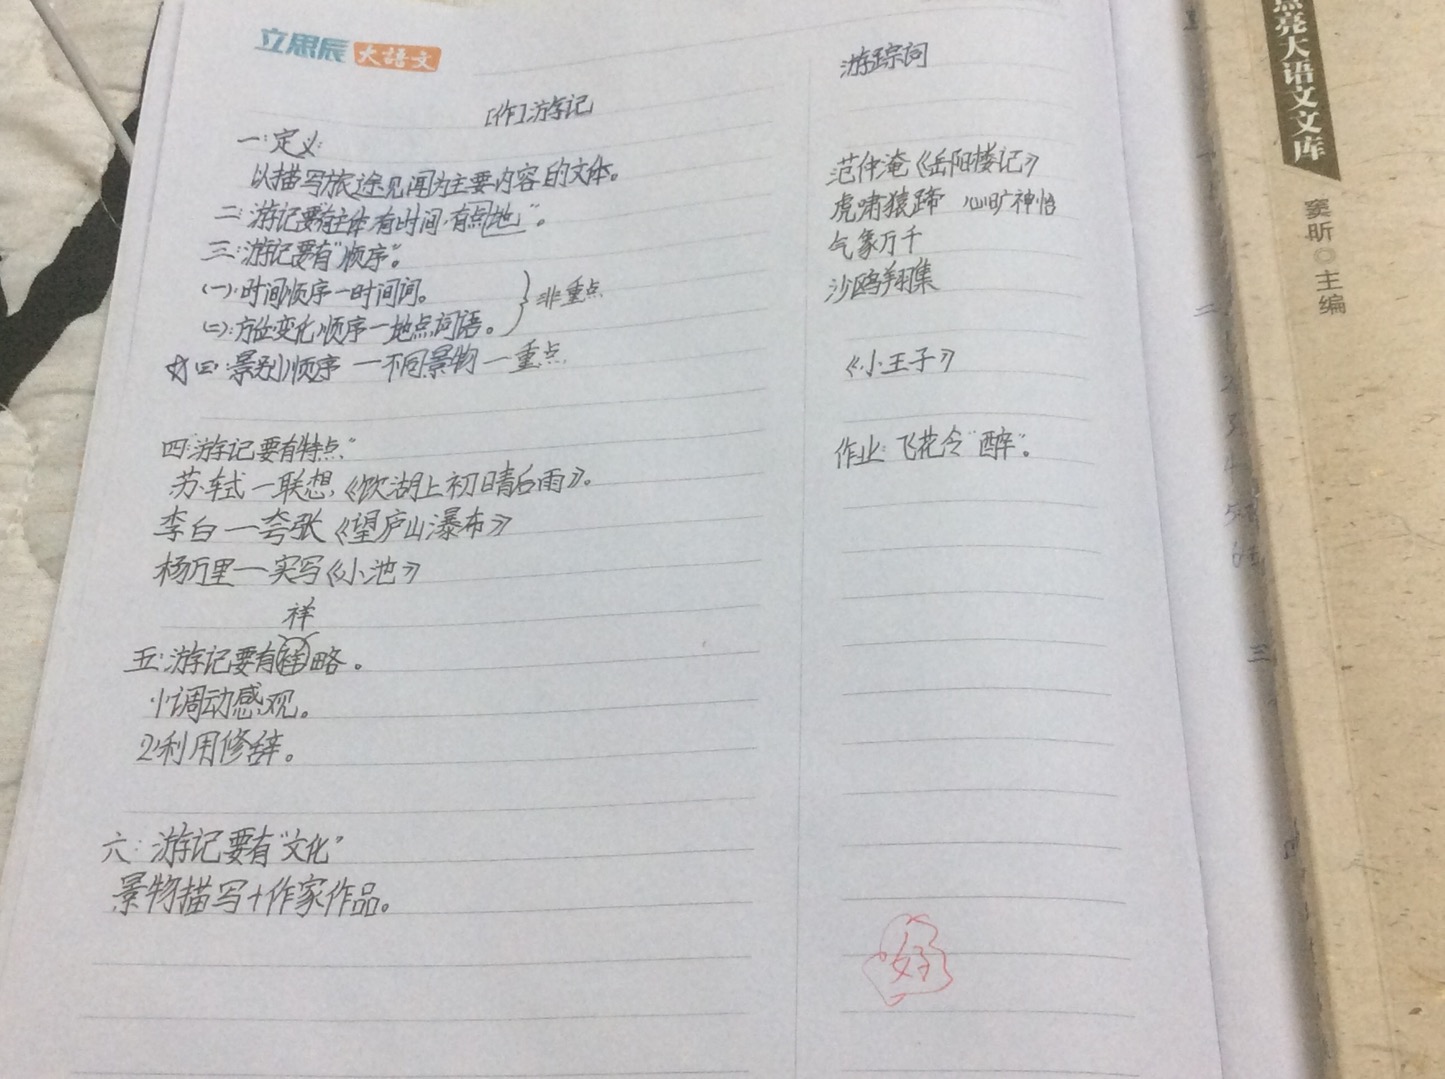 立思辰大语文
[作]游记
一:定义:
以描写旅途见闻为主要内容的文体。
二:游记要"有主体,有时间,有点地"。
三:游记要有"顺序"。
(一):时间顺序—时间词。
(二):方位变化顺序—地点词语。
}非重点
四:景别顺序—不同景物—重点
四:游记要有特点"
苏轼—联想,《饮湖上初晴后雨》。
李白—夸张《望庐山瀑布》
杨万里—实写《小池》
祥
五:游记要有略。
1:调动感观。
2:利用修辞。
六:游记要有"文化"
景物描写+作家作品。
游踪词
范仲淹《岳阳楼记》
虎啸猿蹄 心旷神怡
气象万千
沙鸥翔集
《小王子》
作业:飞花令"醉"。
好
点亮大语文文库
窦昕◎主编